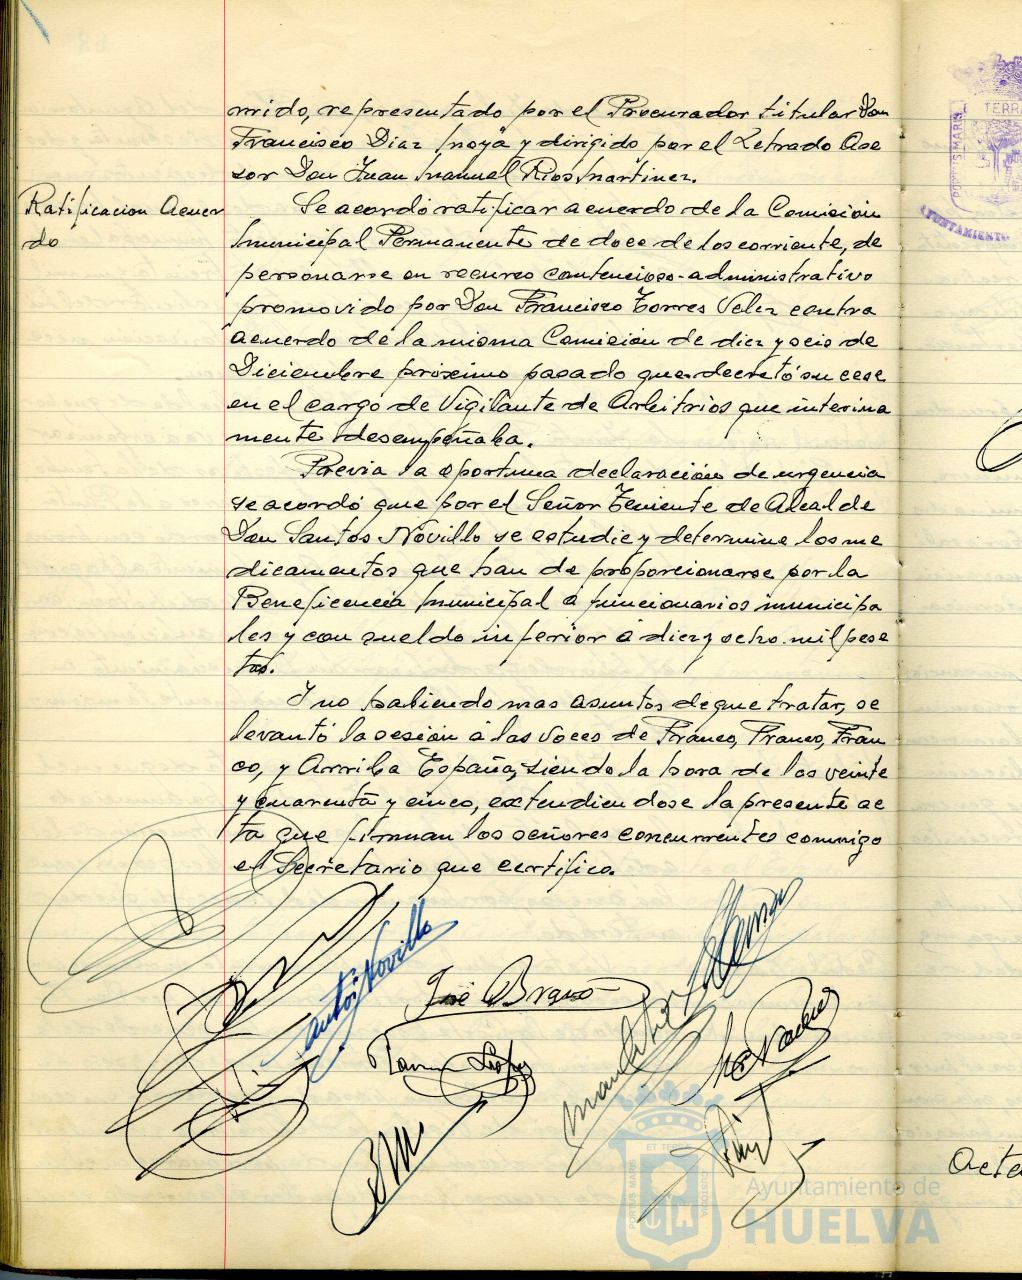 rrido, representado por el Procurador titular Don
Francisco Diaz Moya y dirigido por el Letrado Ase
sor Don Juan Manuel Rios Martinez.
Ratificacion Acuer
do
Se acordó ratificar acuerdo de la Comisión
Municipal Permanente de doce de los corriente, de
personarse en recurso contencioso-administrativo
promovido por Don Francisco Torres Velez contra
acuerdo de la misma Comisión de diez y seis de
Diciembre próximo pasado que decretó su cese
en el cargo de Vigilante de Arbitrios que interina
mente desempeñaba.
Previa la oportuna declaración de urgencia
se acordó que por el Señor Teniente de Alcalde
Don Santos Novillo se estudie y determine los me
dicamentos que han de proporcionarse por la
Beneficencia Municipal á funcionarios municipa
les y con sueldo inferior á diez y ocho mil pese
tas.
Y no habiendo mas asuntos de que tratar, se
levantó la sesión á las voces de Franco, Franco, Fran
co, y Arriba España, siendo la hora de las veinte
y cuarenta y cinco, extendiendose la presente ac
ta que firman los señores concurrentes conmigo
el Secretario que certifico.
Novillo
José Bravo
López
ET TERRA
PORTUS MARIS
CUSTODIA
Ayuntamiento de
HUELVA
TERRA
PORTUS MARIS
AYUNTAMIENTO
Acta